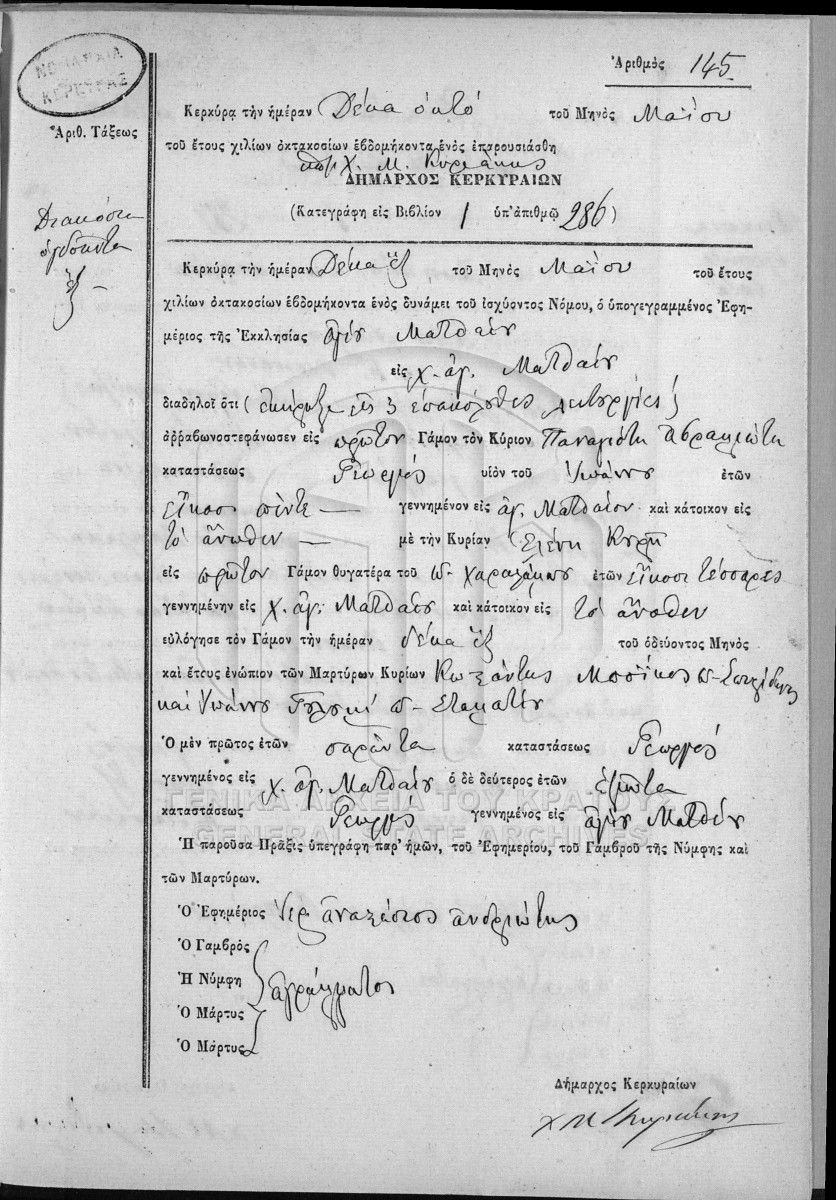 ΝΟΜΑΡΧΙΑ
ΚΕΡΚΥΡΑΣ
Ἀριθμὸς 145
Ἀριθ. Τάξεως
Κερκύρα τὴν ἡμέραν Δέκα ὀκτὸ τοῦ Μηνὸς Μαΐου
τοῦ ἔτους χιλίων ὀκτακοσίων ἑβδομήκοντα ἑνὸς ἐπαρουσιάσθη
Χ. Μ. Κυριάκης
ΔΗΜΑΡΧΟΣ ΚΕΡΚΥΡΑΙΩΝ
(Κατεγράφη εἰς Βιβλίον 1 ὑπ' ἀριθμῷ 286)
Διακόσια
ὀγδοῆντα
ἓξ –
Κερκύρα τὴν ἡμέραν Δέκα ἓξ τοῦ Μηνὸς Μαΐου τοῦ ἔτους
χιλίων ὀκτακοσίων ἑβδομήκοντα ἑνὸς δυνάμει τοῦ ἰσχύοντος Νόμου, ὁ ὑπογεγραμμένος Ἐφη-
μέριος τῆς Ἐκκλησίας ἁγίου Ματθαίου
εἰς χ. ἁγ. Ματθαίου
διαδηλοῖ ὅτι ( ἐκήρυξε εἰς 3 ἐπακόλουθες λειτουργίες )
ἀῤῥαβωνοστεφάνωσεν εἰς πρῶτον Γάμον τὸν Κύριον Παναγιότη
καταστάσεως Γεωργός υἱὸν τοῦ Ἰωάννου ἐτῶν
εἴκοσι πέντε — γεννημένον εἰς ἁγ. Ματθαίον καὶ κάτοικον εἰς
τὸ ἄνωθεν — μὲ τὴν Κυρίαν Ἑλένη Κυρῆ
εἰς πρῶτον Γάμον θυγατέρα τοῦ π. Χαραλάμπου ἐτῶν εἴκοσι τέσσαρες
γεννημένην εἰς χ. ἁγ. Ματθαίου καὶ κάτοικον εἰς τὸ ἄνωθεν
εὐλόγησε τὸν Γάμον τὴν ἡμέραν δέκα ἓξ τοῦ ὁδεύοντος Μηνὸς
καὶ ἔτους ἐνώπιον τῶν Μαρτύρων Κυρίων Κωσάντης π. Σπυρίδωνος
καὶ Ἰωάννου π. Σταματίου
Ὁ μὲν πρῶτος ἐτῶν σαράντα καταστάσεως Γεωργός
γεννημένος εἰς χ. ἁγ. Ματθαίου ὁ δὲ δεύτερος ἐτῶν
καταστάσεως Γεωργός γεννημένος εἰς ἁγίου Ματθέου
ΓΕΝΙΚΑ ΑΡΧΕΙΑ ΤΟΥ ΚΡΑΤΟΥΣ
GENERAL STATE ARCHIVES
Ἡ παροῦσα Πρᾶξις ὑπεγράφη παρ' ἡμῶν, τοῦ Ἐφημερίου, τοῦ Γαμβροῦ τῆς Νύμφης καὶ
τῶν Μαρτύρων.
Ὁ Ἐφημέριος Ἱερ. ἀναστάσιος ἀνδριώτης
Ὁ Γαμβρὸς
Ἡ Νύμφη ἀγράμματοι
Ὁ Μάρτυς
Ὁ Μάρτυς
Δήμαρχος Κερκυραίων
Χ Μ Κυριάκης